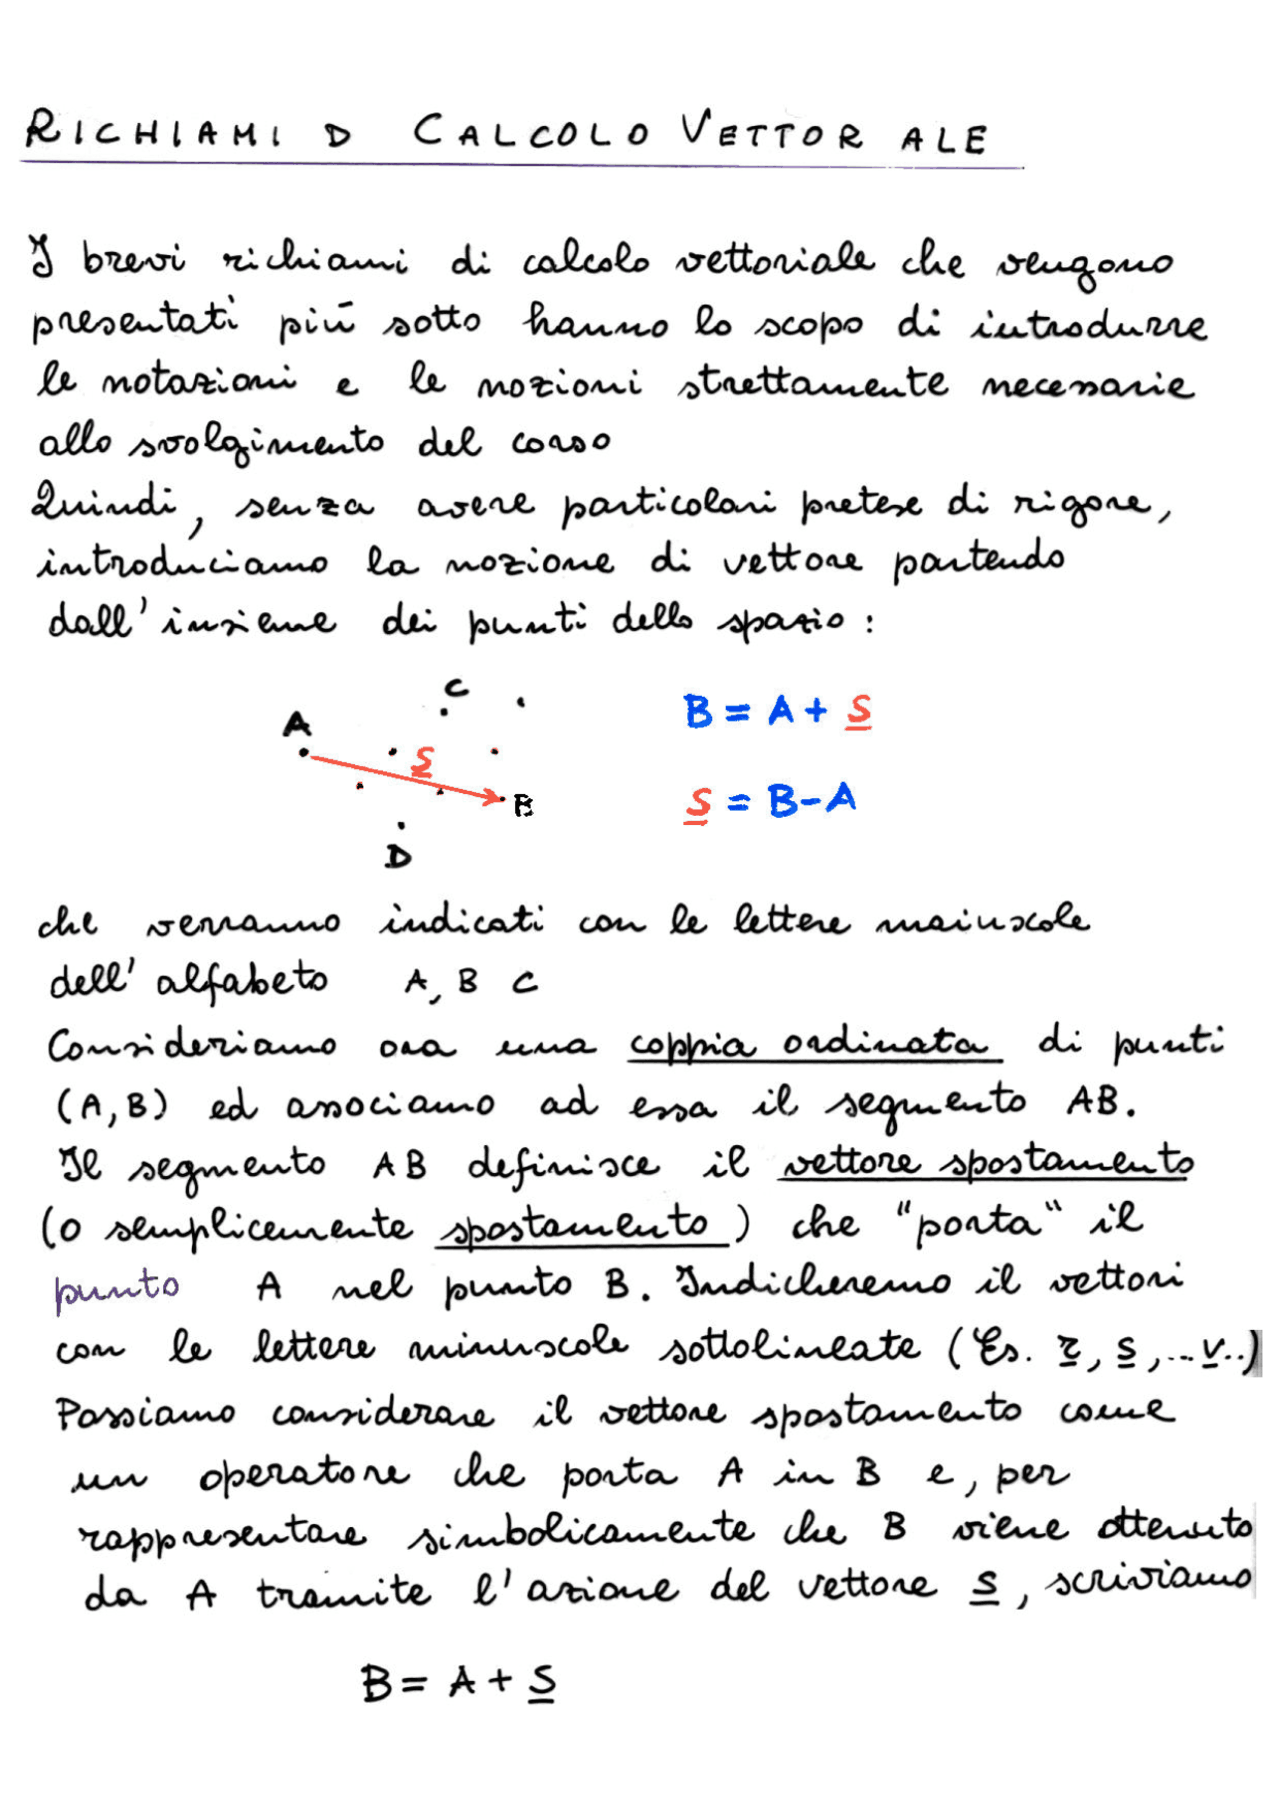 RICHIAMI D CALCOLO VETTOR ALE
I brevi richiami di calcolo vettoriale che vengono
presentati più sotto hanno lo scopo di introdurre
le notazioni e le nozioni strettamente necessarie
allo svolgimento del corso
Quindi, senza avere particolari pretese di rigore,
introduciamo la nozione di vettore partendo
dall'insieme dei punti dello spazio:
C
A
S
B
D
B = A + S
S = B - A
che verranno indicati con le lettere maiuscole
dell'alfabeto A, B C
Consideriamo ora una coppia ordinata di punti
(A, B) ed associamo ad essa il segmento AB.
Il segmento AB definisce il vettore spostamento
(o semplicemente spostamento) che "porta" il
punto A nel punto B. Indicheremo il vettori
con le lettere minuscole sottolineate (Es. r, s, ... v..)
Possiamo considerare il vettore spostamento come
un operatore che porta A in B e, per
rappresentare simbolicamente che B viene ottenuto
da A tramite l'azione del vettore s, scriviamo
B = A + S